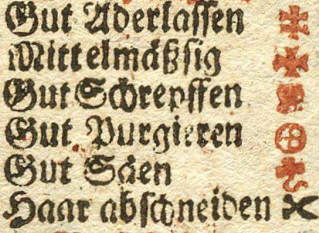 Gut Aderlassen
Mittelmäßsig
Gut Schrepffen
Gut Purgieren
Gut Säen
Haar abschneiden